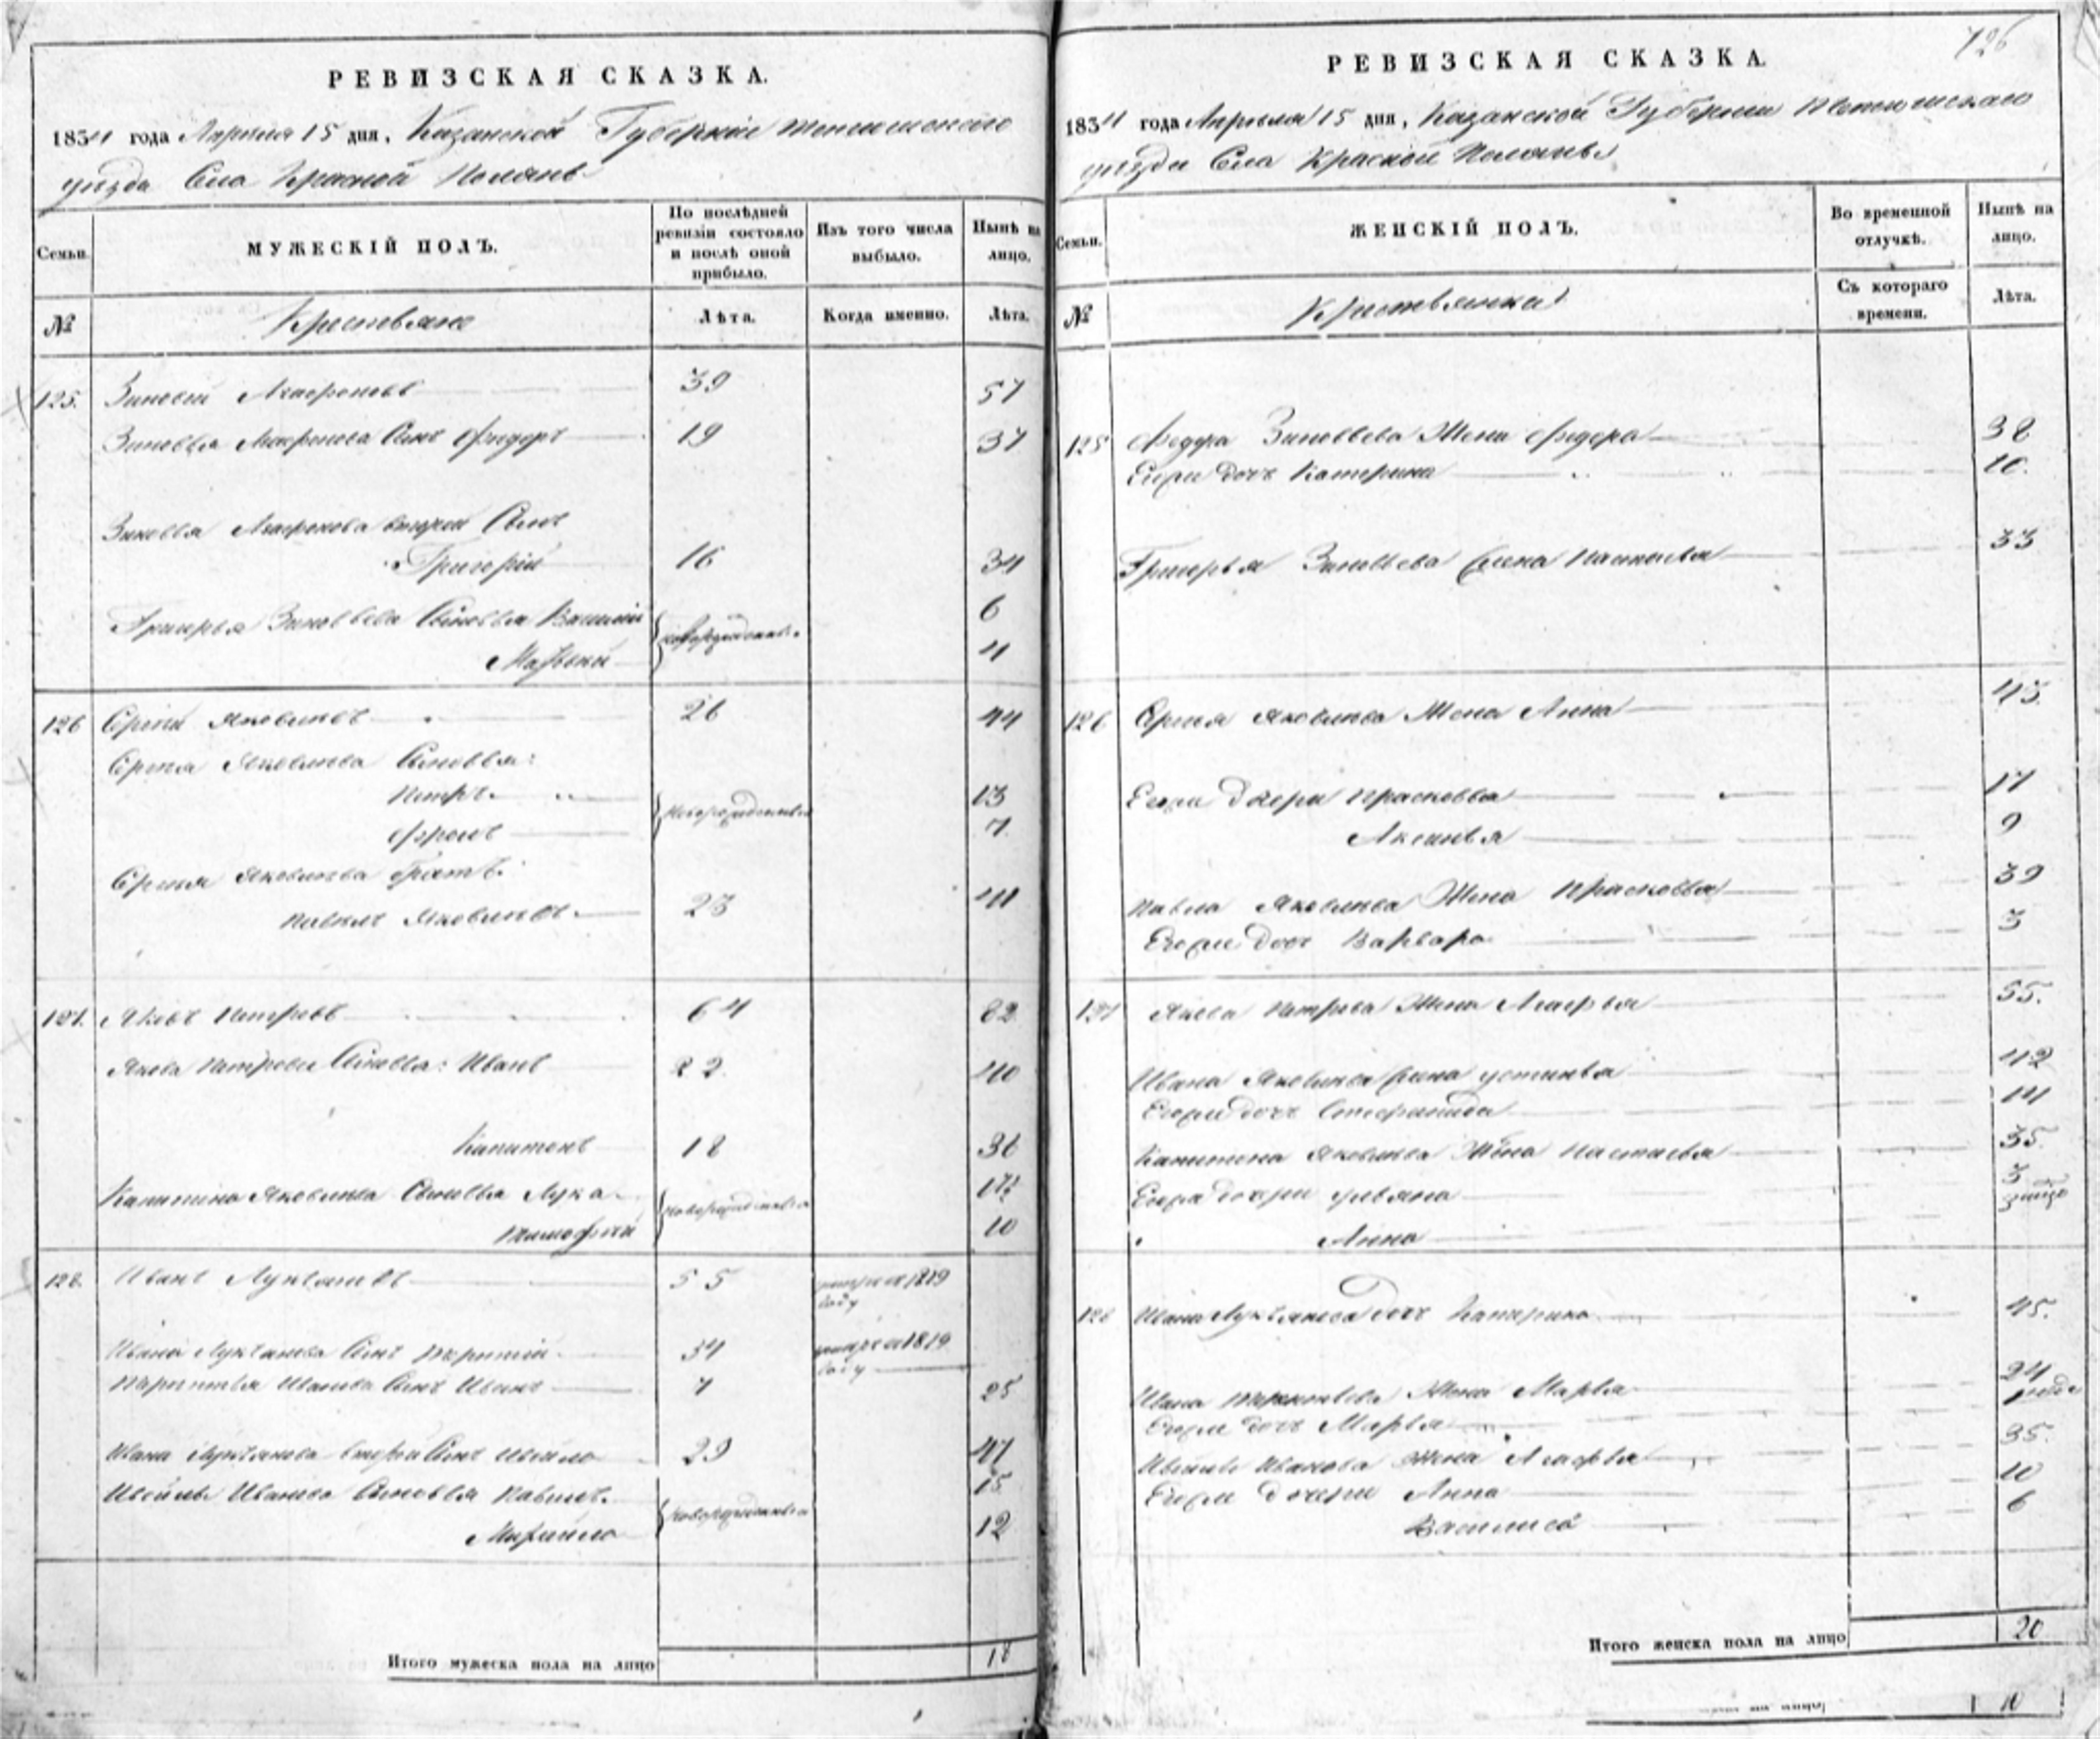 РЕВИЗСКАЯ СКАЗКА.
1834 года Апреля 15 дня, Казанской Губернiи
уезда Села Красной Поляны
Семьи.
МУЖЕСКIЙ ПОЛЪ.
По послѣдней ревизiи состояло и послѣ оной прибыло.
Изъ того числа выбыло.
Нынѣ на лицо.
№
Крестьяне
Лѣта.
Когда именно.
Лѣта.
125. Зиновей 39 57
Зиновья Сынъ Федоръ 19 37
Зиновья второй Сынъ
Григорiй 16 34
Григорья Зиновьева Сыновья Василiй новорожденные 6
4
126 Сергей Яковлевъ 26 44
Сергея Яковлева Сыновья:
Петръ новорожденные 13
7
Сергея Яковлева братъ:
Павелъ Яковлевъ 23 41
127. Яковъ Петровъ 64 82
Якова Петрова Сыновья: Иванъ 22 40
Капитонъ 18 36
Капитона Яковлева Сыновья Лука новорожденные
Тимофей 10
128. Иванъ Лукьяновъ 55 умре въ 1829
году
Ивана Лукьянова Сынъ Терентiй 34 умре въ 1819
году
Терентья Иванова Сынъ Иванъ 7 25
Ивана Лукьянова второй Сынъ 29 47
Иванова Сыновья Павелъ новорожденные 15
Михайло 12
Итого мужеска пола на лицо 18
726
РЕВИЗСКАЯ СКАЗКА.
1834 года Апреля 15 дня, Казанской Губернiи
уезда Села Красной Поляны
Семьи.
ЖЕНСКIЙ ПОЛЪ.
Во временной отлучкѣ.
Нынѣ на лицо.
№
Крестьянки
Съ котораго времени.
Лѣта.
125 Федора Зиновьева Жена 38
Егоже дочь Катерина 10.
Григорья Зиновьева Жена Настасья 33
126 Сергея Яковлева Жена Анна 43.
Егоже дочери Прасковья 17
Аксинья 9
Павла Яковлева Жена Прасковья 39
Егоже дочь Варвара 3
127 Якова Петрова Жена 55.
Ивана Яковлева Жена Устинья 42
Егоже дочь Степанида 14
Капитона Яковлева Жена Настасья 35.
Егоже дочери Ульяна 3
Анна
128 Ивана Лукьянова дочь Катерина 45.
Ивана Терентьева Жена Марья 24
Егоже дочь Марья
Иванова Жена 35.
Егоже дочери Анна 10
Василиса 6
Итого женска пола на лицо 20
на лицо